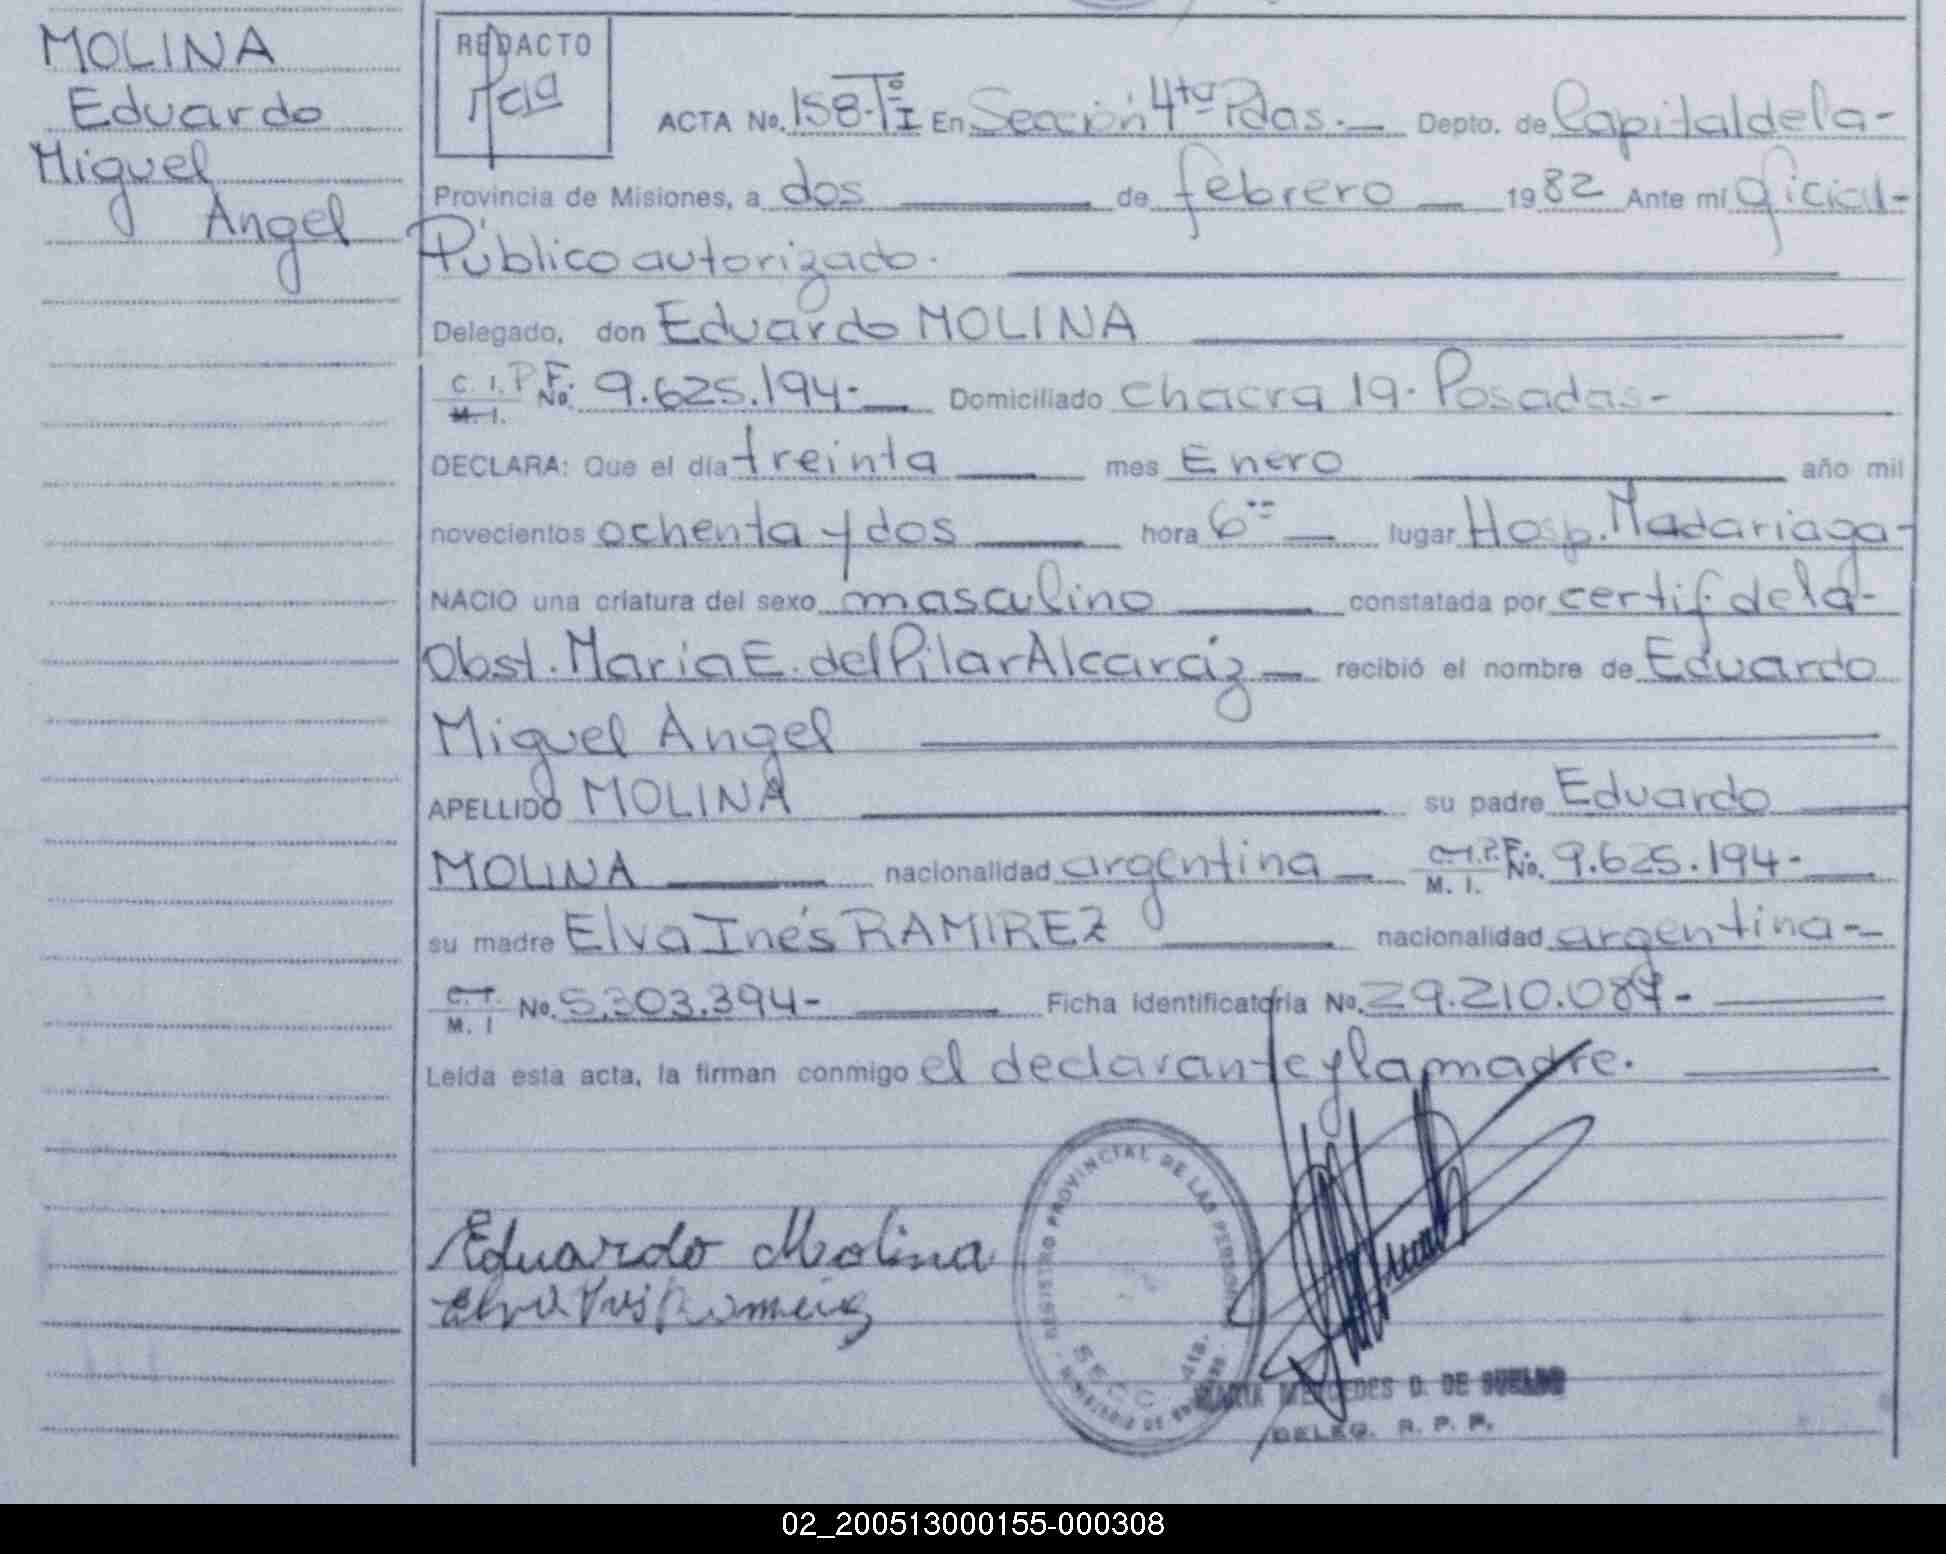 MOLINA
Eduardo
Miguel
Angel
REDACTO
ACTA No. 158-Tº I En Sección 4ta Pdas.- Depto. de Capital de la-
Provincia de Misiones, a dos de febrero 1982 Ante mí Oficial-
Público autorizado.
Delegado, don Eduardo MOLINA
C. I. P.F. No. 9.625.194- Domiciliado chacra 19. Posadas-
M. I.
DECLARA: Que el día treinta mes Enero año mil
novecientos ochenta y dos hora 6 lugar Hosp. Madariaga-
NACIO una criatura del sexo masculino constatada por certif. de la-
Obst. María E. del Pilar Alcaráz recibió el nombre de Eduardo
Miguel Angel
APELLIDO MOLINA su padre Eduardo
MOLINA nacionalidad argentina C.I.P.F. No. 9.625.194-
M. I.
su madre Elva Inés RAMIREZ nacionalidad argentina-
C. I. No. 5.303.394- Ficha Identificatoria No. 29.210.089-
M. I
Leída esta acta, la firman conmigo el declarante y la madre.
Eduardo Molina
REGISTRO PROVINCIAL DE LAS PERSONAS
SECC. 4ta.
MARIA MERCEDES D. DE
DELEG. R. P. P.
02_200513000155-000308